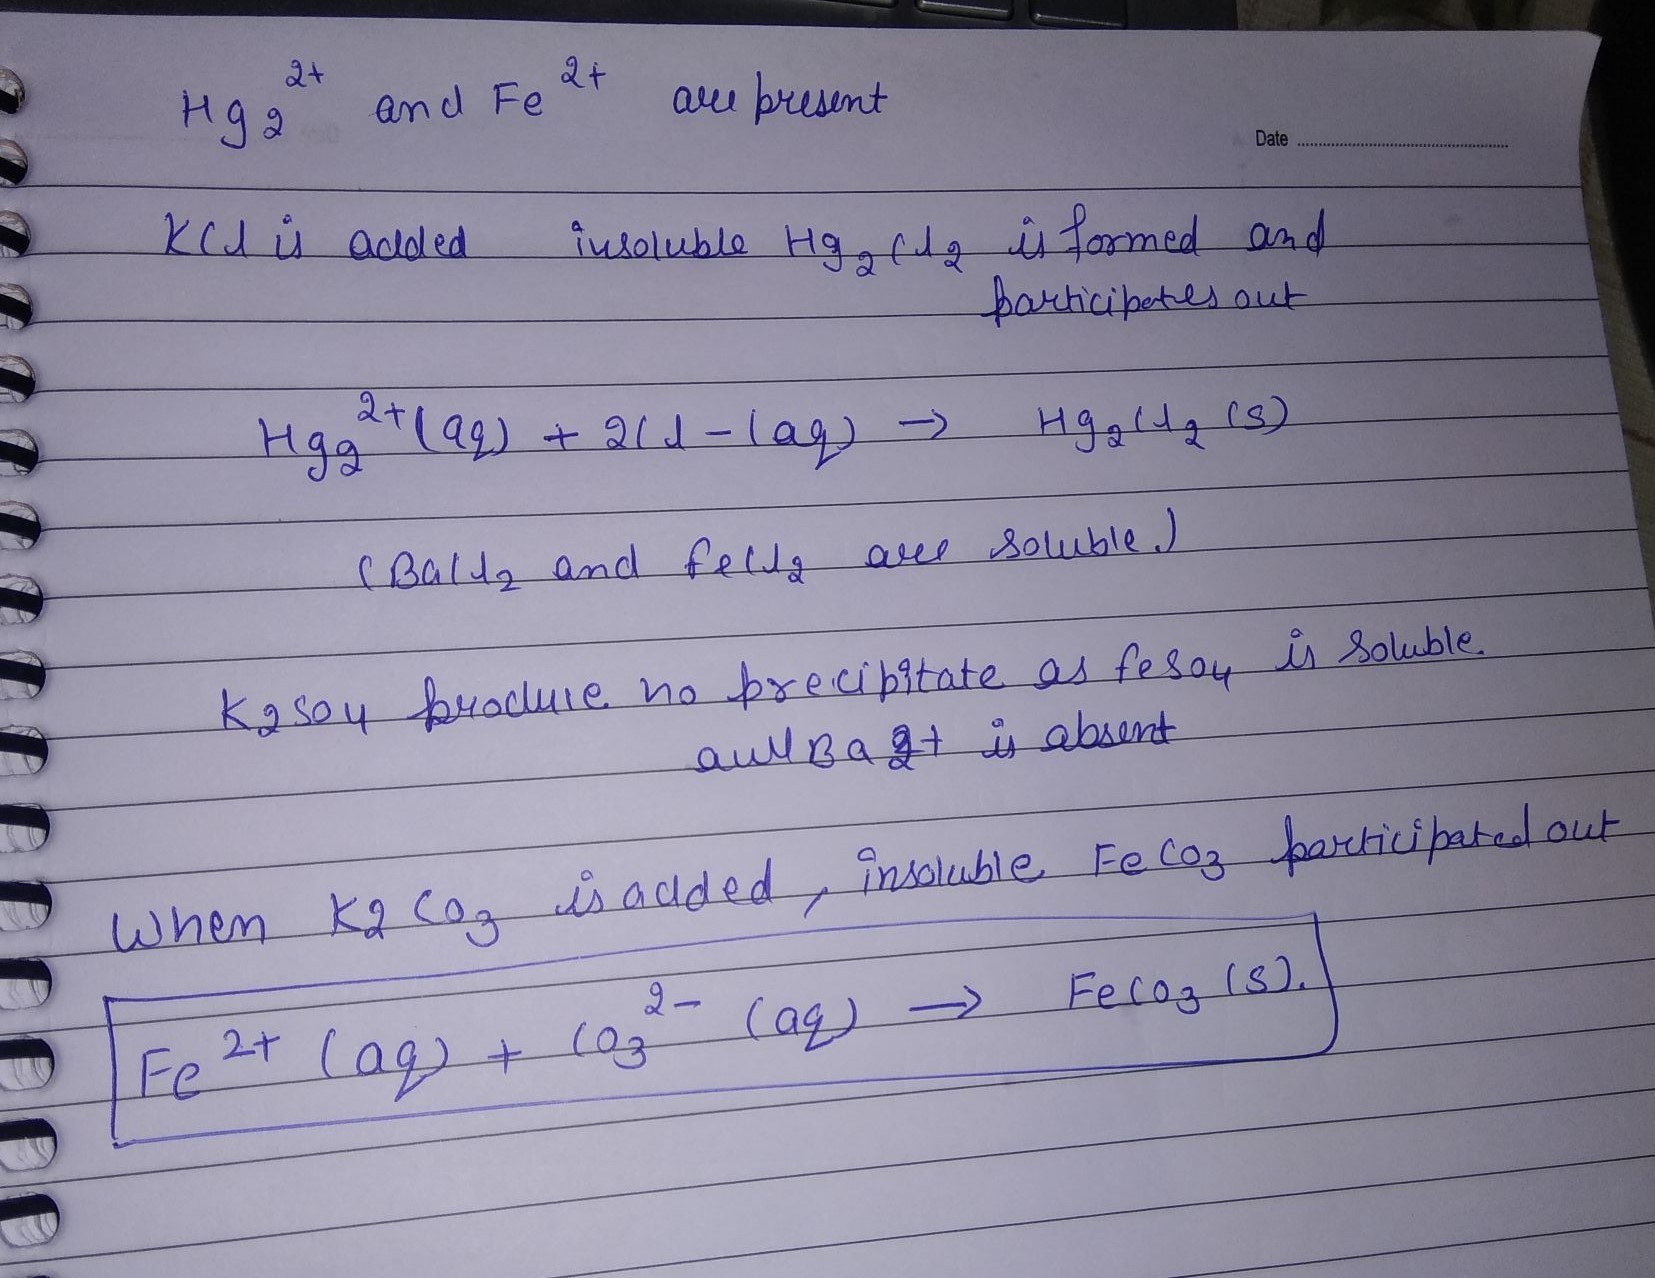 Hg2 2+ and Fe 2+ are present
Date
KCl is added insoluble Hg2Cl2 is formed and
participates out
Hg2 2+ (aq) + 2Cl - (aq) → Hg2Cl2 (s)
(BaCl2 and FeCl2 are soluble.)
K2SO4 produce no precipitate as FeSO4 is soluble.
Ba 2+ is absent
When K2CO3 is added, insoluble FeCO3 participated out
Fe 2+ (aq) + CO3 2- (aq) → FeCO3 (s).